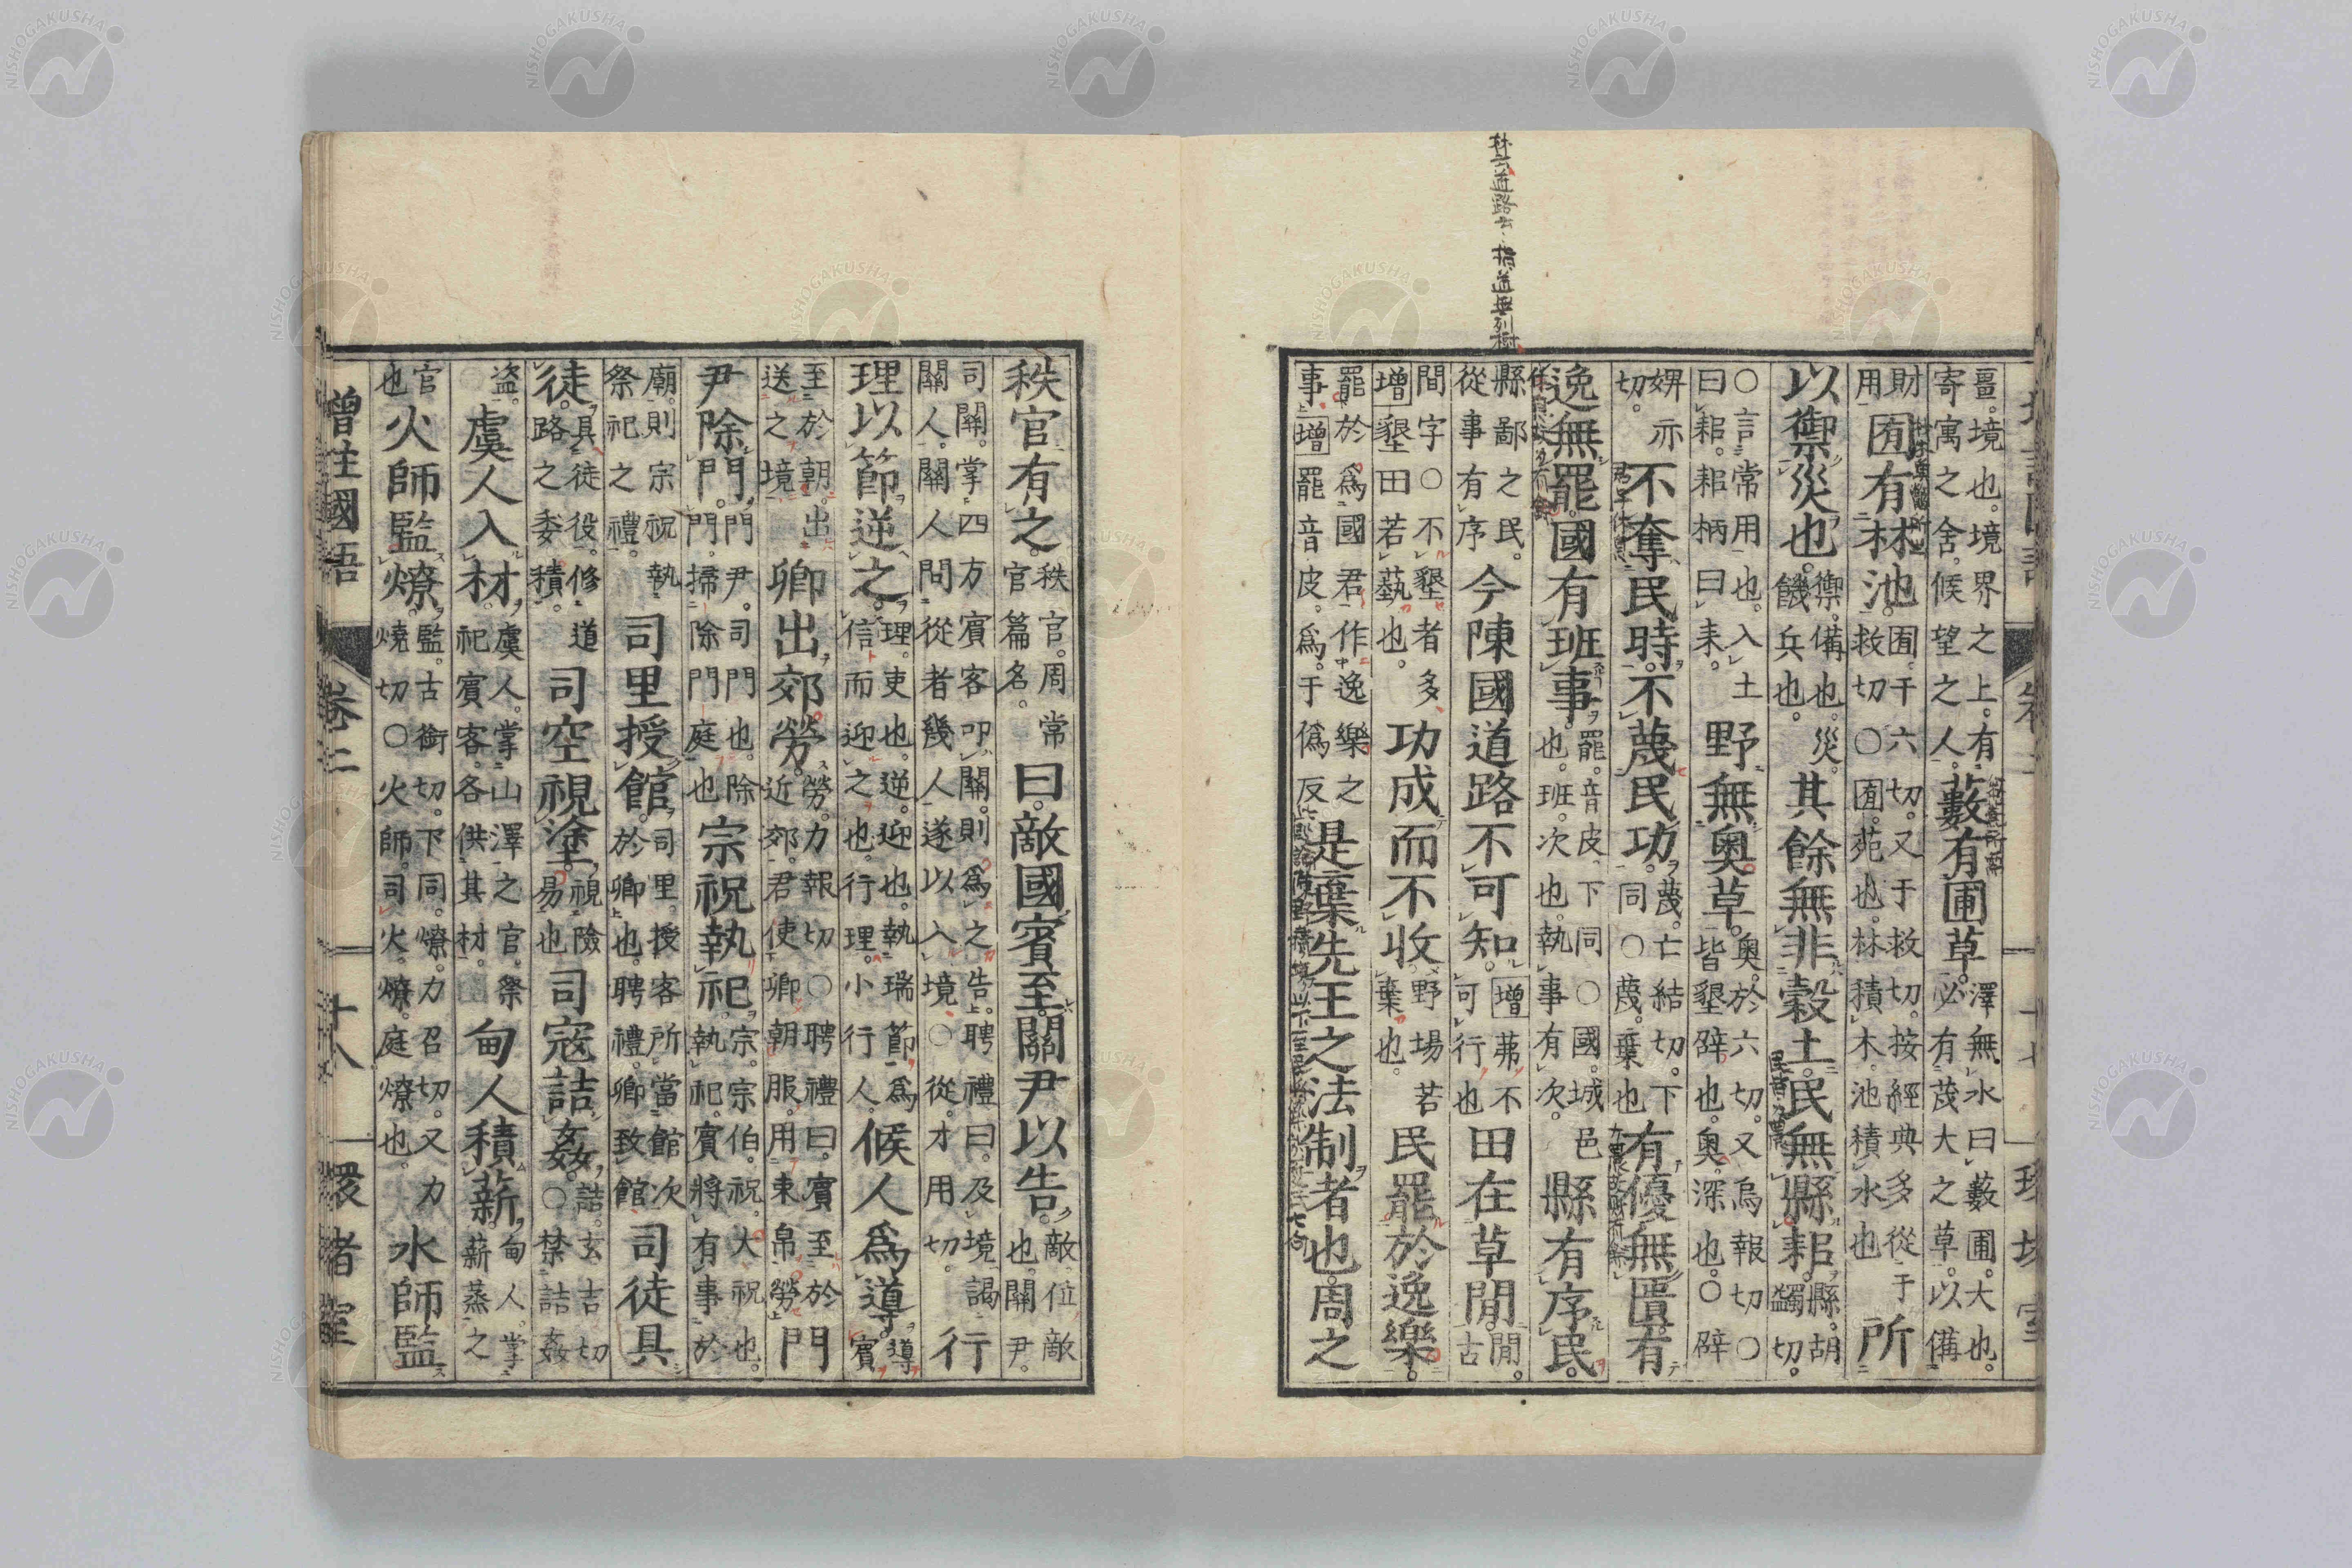 畺境也境界之上有
寄寓之舍候望之人藪有圃草澤無水曰藪圃大也
必有茂大之草以備
財用囿有林池囿于六切又于救切按經典多從于
救切○囿苑也林積木池積水也所
以禦災也禦備也災饑兵也其餘無非穀土民無縣耜縣胡蠲切
○言常用也入土曰耜耜柄曰耒野無奧草奧於六切又烏報切○
皆墾辟也奧深也○辟
婢亦切不奪民時不蔑民功蔑亡結切下同○蔑棄也有優無匱有
逸無罷國有班事罷音皮下同○國城邑也班次也執事有次縣有序民
縣鄙之民從事有序今陳國道路不可知增茀不可行也田在草閒閒古
間字○不墾者多增墾田若蓺也功成而不收野場若棄也民罷於逸樂
罷於為國君作逸樂之事增罷音皮為于偽反是棄先王之法制者也周之
秩官有之秩官周常官篇名曰敵國賓至關尹以告敵位敵也關尹
司關掌四方賓客叩關則為之告聘禮曰及境謁
關人關人問從者幾人遂以入境○從才用切行
理以節逆之理吏也逆迎也執瑞節為信而迎之也行理小行人候人為導導賓
至於朝出送之境卿出郊勞勞力報切○聘禮曰賓至於近郊君使卿朝服用束帛勞門
尹除門門尹司門也除門掃除門庭也宗祝執祀宗宗伯祝大祝也執祀賓將有事於
廟則宗祝執祭祀之禮司里授館司里授客所當館次於卿也聘禮卿致館司徒具
徒具徒役修道路之委積司空視塗視險易也司寇詰姦詰玄吉切○禁詰姦
盜虞人入材虞人掌山澤之官祭祀賓客各供其材甸人積薪甸人掌薪蒸之
官也火師監燎監古銜切下同燎力召切又力燒切○火師司火燎庭燎也水師監
增註國語
卷二
十八
環堵室
杜云道路云々指道無列樹
NISHOGAKUSHA